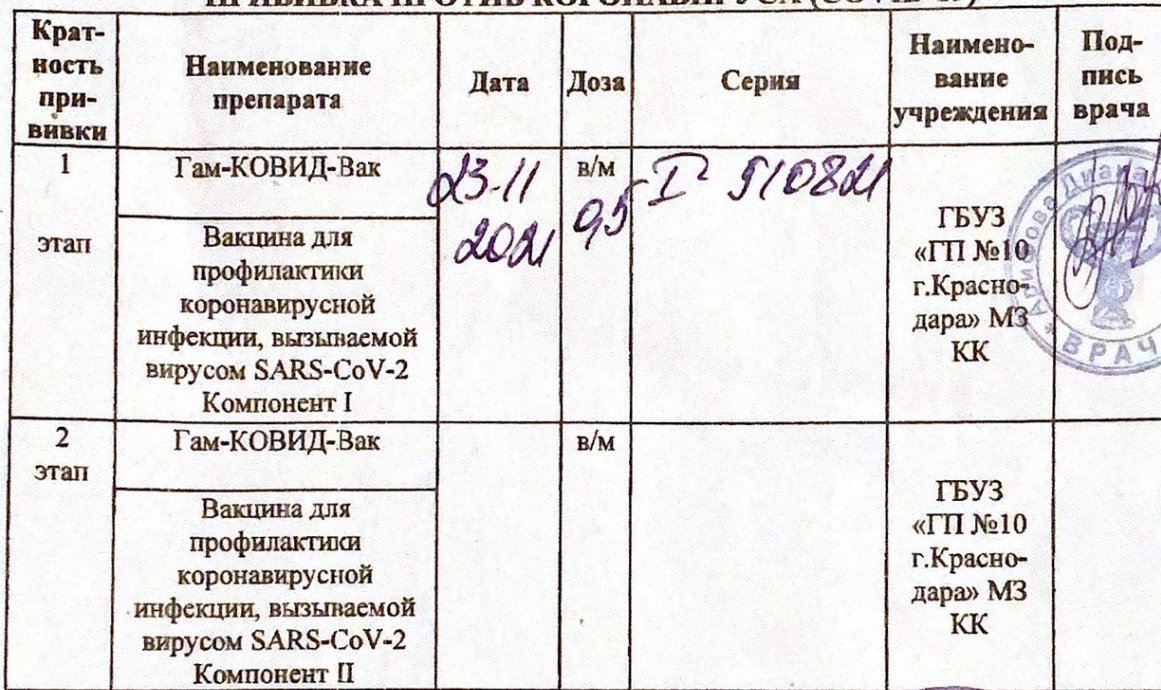 ПРИВИВКА ПРОТИВ КОРОНАВИРУСА (COVID-19)
Крат-
ность
при-
вивки
Наименование
препарата
Дата
Доза
Серия
Наимено-
вание
учреждения
Под-
пись
врача
1
этап
Гам-КОВИД-Вак
Вакцина для
профилактики
коронавирусной
инфекции, вызываемой
вирусом SARS-CoV-2
Компонент I
23.11
2021
в/м
0,5
I 510821
ГБУЗ
«ГП №10
г.Красно-
дара» МЗ
КК
Диана
ВРАЧ
2
этап
Гам-КОВИД-Вак
Вакцина для
профилактики
коронавирусной
инфекции, вызываемой
вирусом SARS-CoV-2
Компонент II
в/м
ГБУЗ
«ГП №10
г.Красно-
дара» МЗ
КК